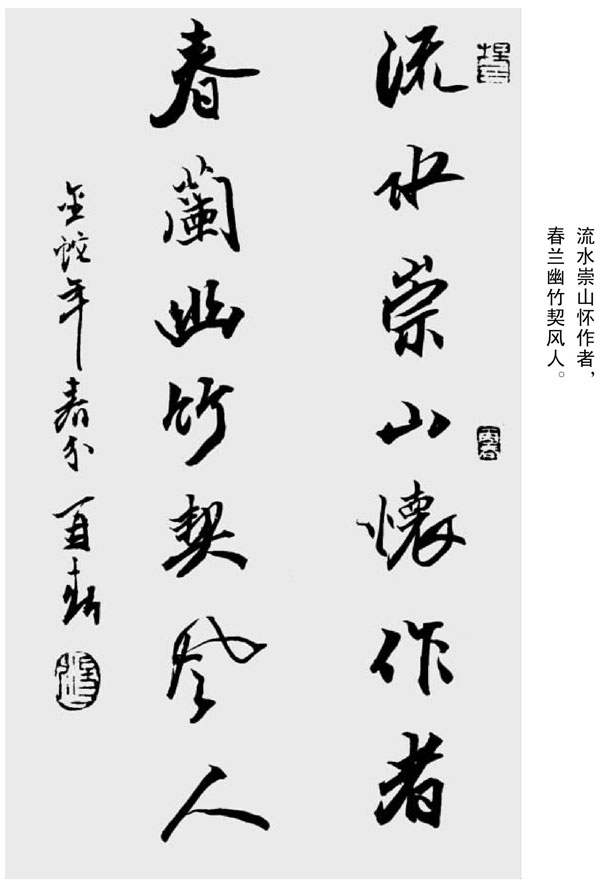 流水崇山怀作者,
春兰幽竹契风人。
流水崇山懷作者
春蘭幽竹契風人
金蛇年春分